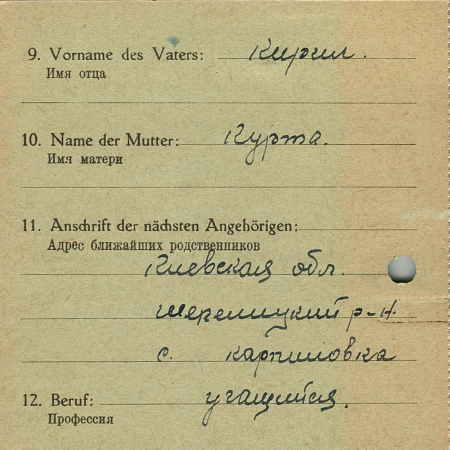 9. Vorname des Vaters: Кирил.
Имя отца
10. Name der Mutter: Курта.
Имя матери
11. Anschrift der nächsten Angehörigen:
Адрес ближайших родственников
Киевская обл.
р-н.
с. карпиловка
12. Beruf: учащийся.
Профессия